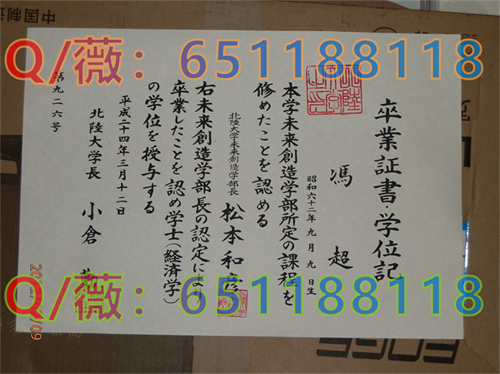 Q/薇：651188118
卒業証書・学位記
馮 超
昭和六十二年九月九日生
本学未来創造学部所定の課程を
修めたことを認める
北陸大学未来創造学部長 松本和彦
右未来創造学部長の認定により
卒業したことを認め学士(経済学)
の学位を授与する
平成二十四年三月十二日
北陸大学長 小倉
第九二六号
Q/薇：651188118
中国制